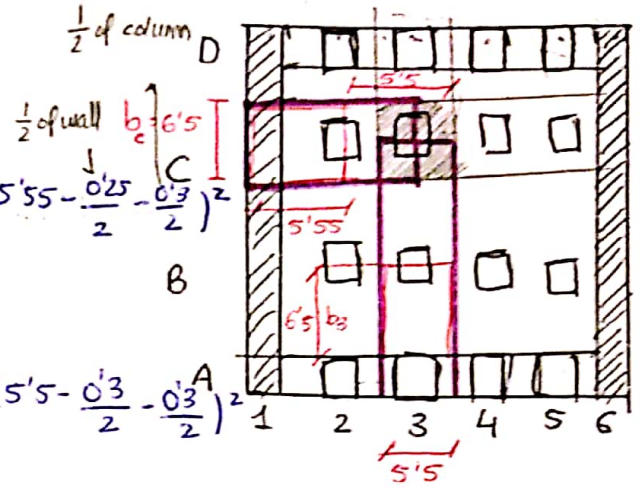 1/2 of column D
5'5
1/2 of wall bc 6'5
C
5'55 - 0'25/2 - 0'3/2 )²
5'55
B
6'5 b3
A
5'5 - 0'3/2 - 0'3/2 )²
1 2 3 4 5 6
5'5